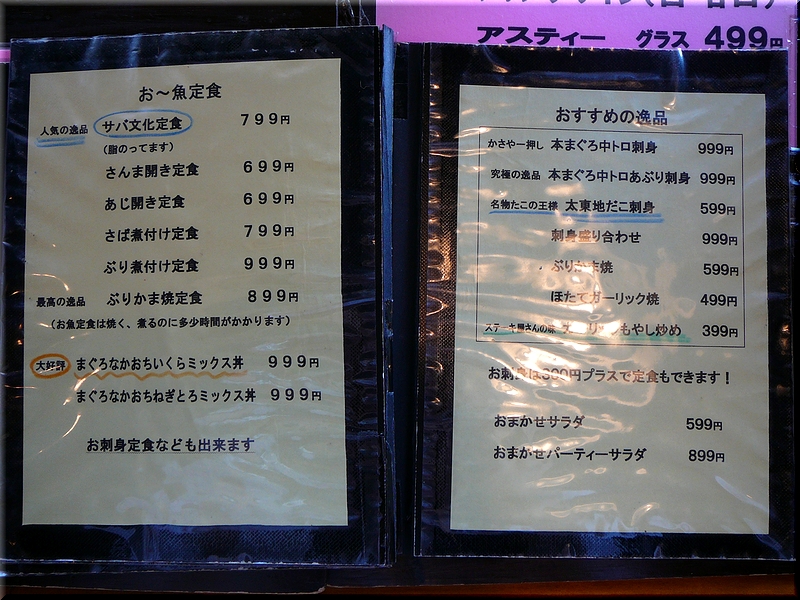 アスティー グラス 499円
お〜魚定食
人気の逸品 サバ文化定食 799円
(脂のってます)
さんま開き定食 699円
あじ開き定食 699円
さば煮付け定食 799円
ぶり煮付け定食 999円
最高の逸品 ぶりかま焼定食 899円
(お魚定食は焼く、煮るのに多少時間がかかります)
大好評 まぐろなかおちいくらミックス丼 999円
まぐろなかおちねぎとろミックス丼 999円
お刺身定食なども出来ます
おすすめの逸品
かさや一押し 本まぐろ中トロ刺身 999円
究極の逸品 本まぐろ中トロあぶり刺身 999円
名物たこの王様 太東地だこ刺身 599円
刺身盛り合わせ 999円
ぶりかま焼 599円
ほたてガーリック焼 499円
ステーキ屋さんの味 もやし炒め 399円
お刺身は300円プラスで定食もできます!
おまかせサラダ 599円
おまかせパーティーサラダ 899円